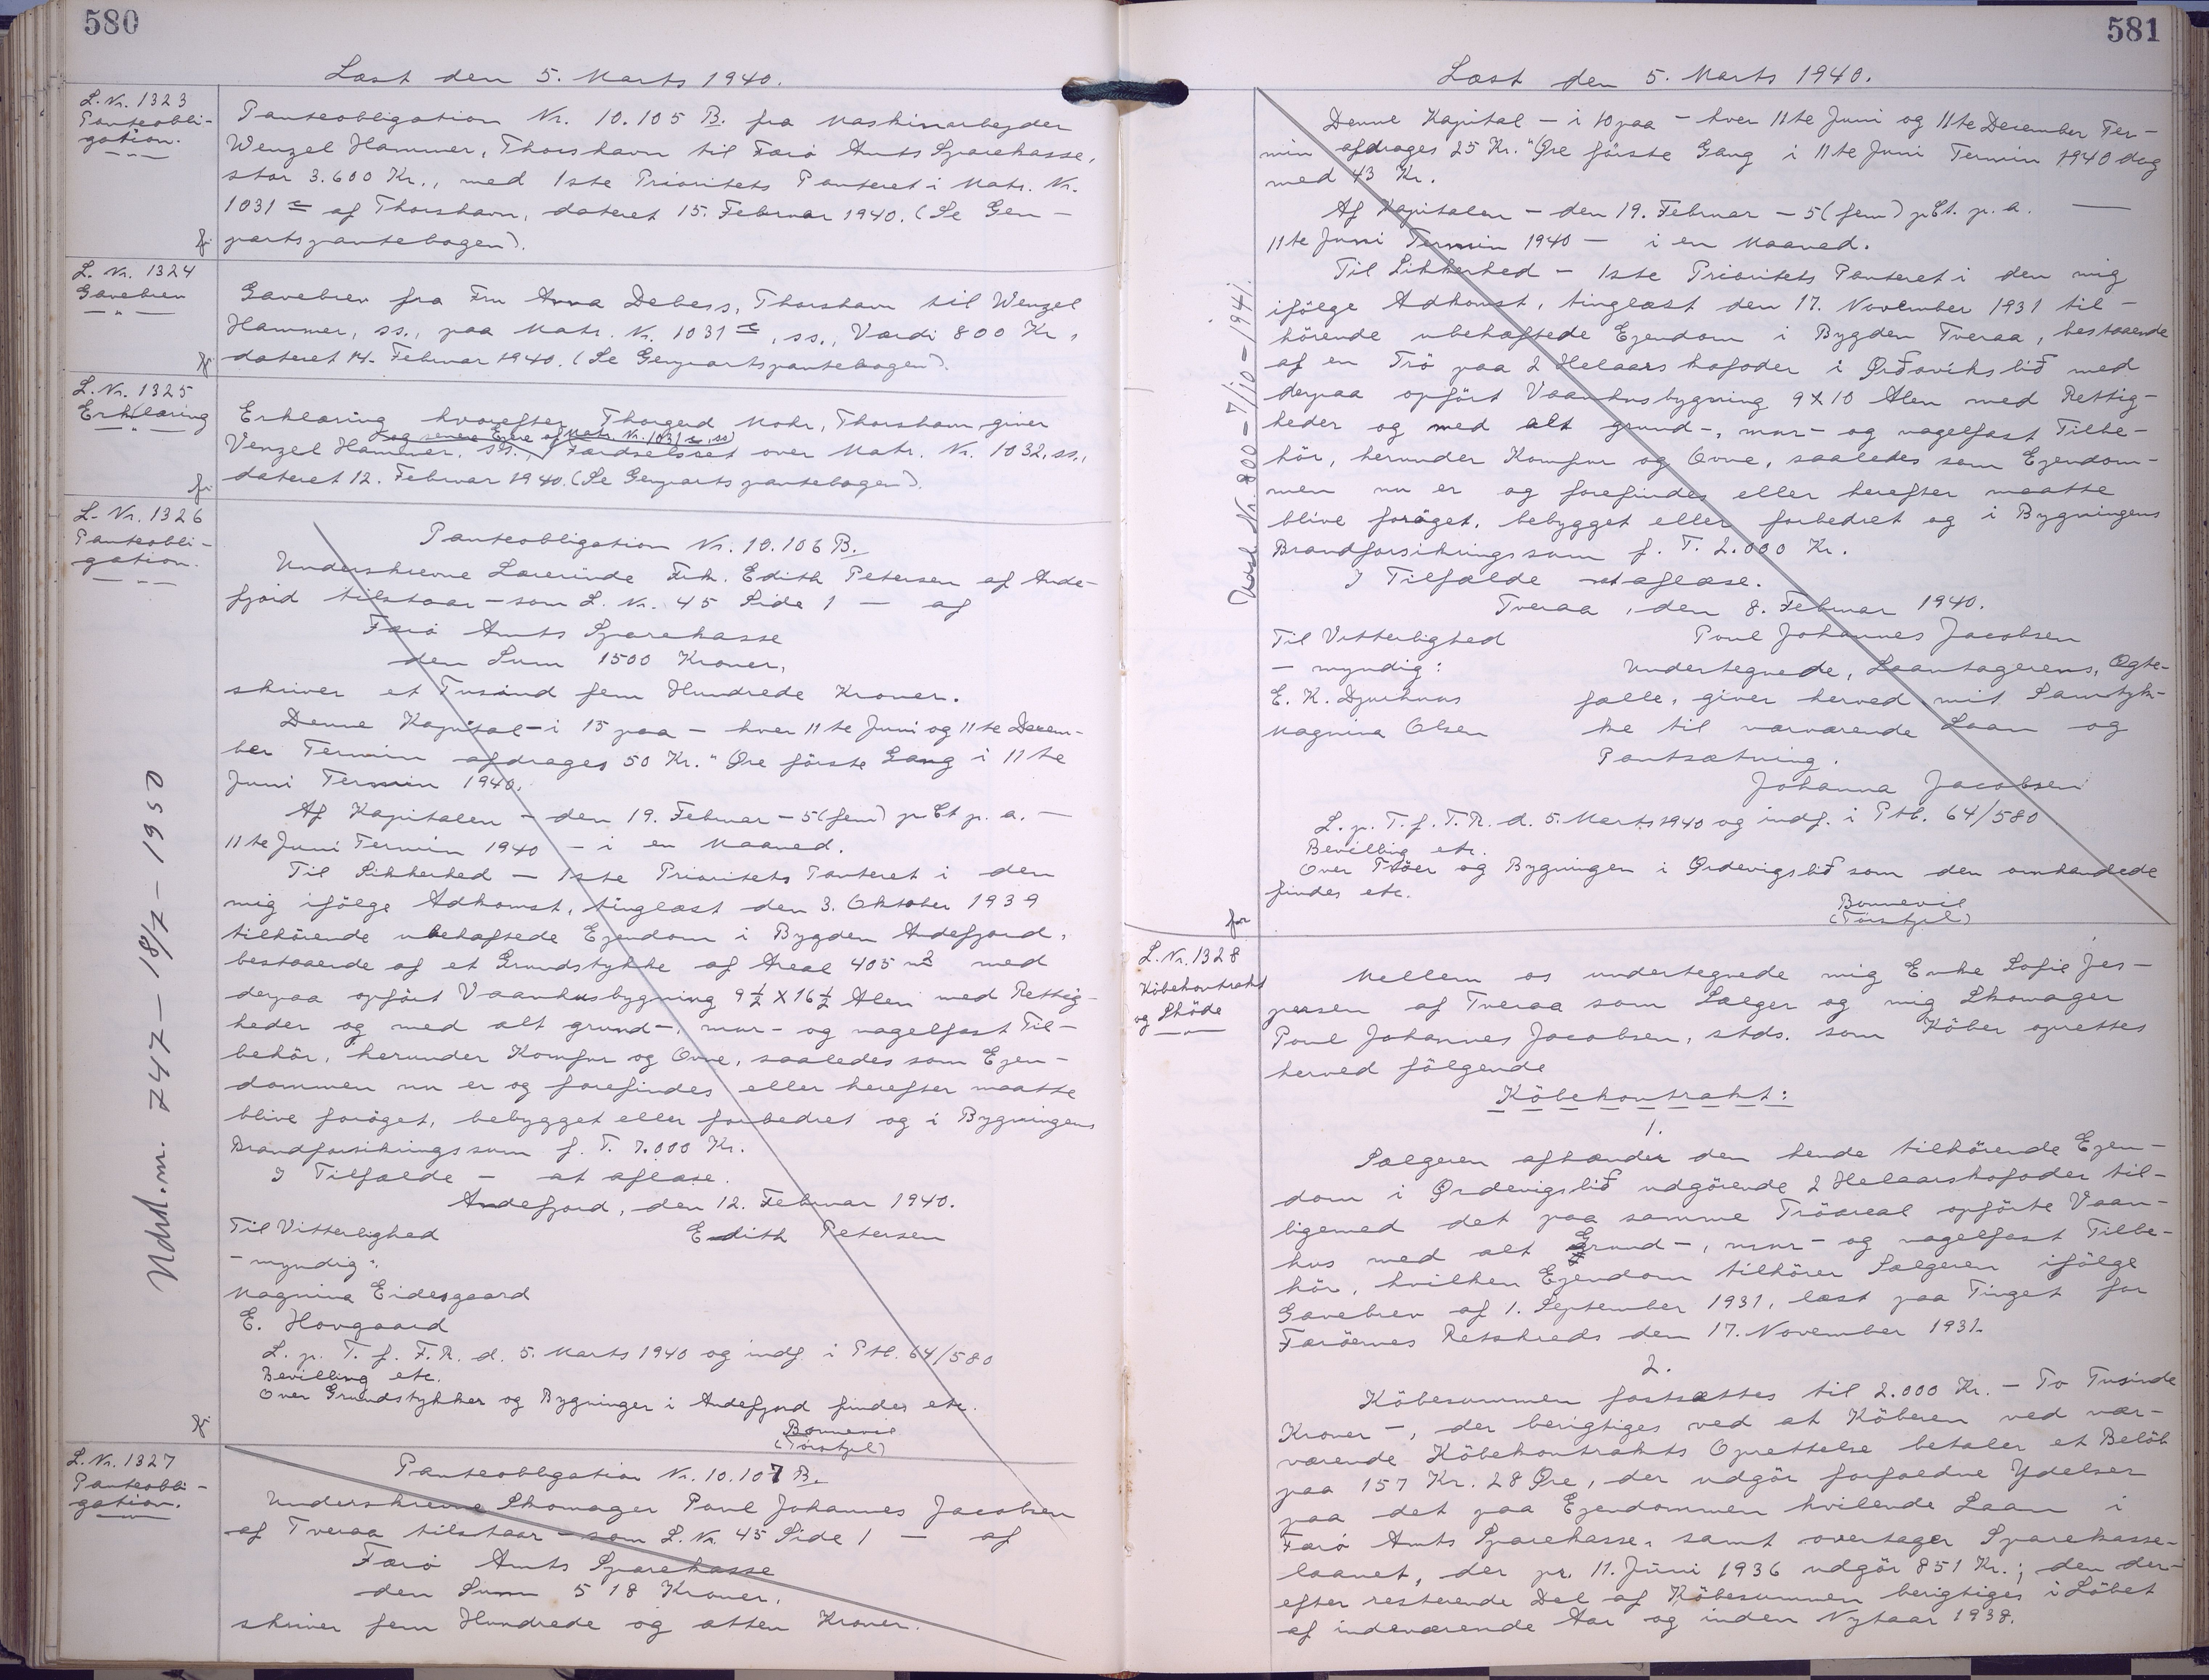 580
Læst den 5. Marts 1940.
L. Nr. 1323
Panteobli-
gation.
Panteobligation Nr. 10.105 B. fra Maskinarbejder
Wenzel Hammer, Thorshavn til Færö Amts Sparekasse,
stor 3.600 Kr., med 1ste Prioritets Panteret i Matr. Nr.
1031 c af Thorshavn, dateret 15. Februar 1940. (Se Gen-
partspantebogen).
L. Nr. 1324
Gavebrev
Gavebrev fra Fru Anna Debess, Thorshavn til Wenzel
Hammer, ss., paa Matr. Nr. 1031 c, ss., Værdi 800 Kr.,
dateret 14. Februar 1940. (Se Genpartspantebogen).
L. Nr. 1325
Erklæring
Erklæring hvorefter Thorgerd Mohr, Thorshavn giver
og senere Ejere af Matr. Nr. 1031 c, ss)
Venzel Hammer, ss., Færdselsret over Matr. Nr. 1032, ss.,
dateret 12. Februar 1940. (Se Genpartspantebogen).
L. Nr. 1326
Panteobli-
gation.
Panteobligation Nr. 10.106 B.
Underskrevne Lærerinde Frk. Edith Petersen af Ande-
fjord tilstaar - som L. Nr. 45 Side 1 - af
Færö Amts Sparekasse
den Sum 1500 Kroner,
skriver et Tusind fem Hundrede Kroner.
Denne Kapital - i 15 paa - hver 11te Juni og 11te Decem-
ber Termin afdrages 50 Kr. " Øre förste Gang i 11te
Juni Termin 1940.
Af Kapitalen - den 19. Februar - 5 (fem) pCt p. a. -
11te Juni Termin 1940 - i en Maaned.
Til Sikkerhed - 1ste Prioritets Panteret i den
mig ifölge Adkomst, tinglæst den 3. Oktober 1939
tilhörende ubehæftede Ejendom i Bygden Andefjord,
bestaaende af et Grundstykke af Areal 405 m2 med
derpaa opfört Vaanhusbygning 9 1/2 X 16 1/2 Alen med Rettig-
heder og med alt grund-, mur- og nagelfast Til-
behör, herunder Komfur og Ovne, saaledes som Ejen-
dommen nu er og forefindes eller herefter maatte
blive foröget, bebygget eller forbedret og i Bygningens
Brandforsikringssum f. T. 7.000 Kr.
I Tilfælde - at aflæse.
Andefjord, den 12. Februar 1940.
Til Vitterlighed Edith Petersen
- myndig:
Magnina Eidesgaard
E. Hovgaard
L. p. T. f. F. R. d. 5. Marts 1940 og indf. i Ptb. 64/580
Bevilling etc.
Over Grundstykker og Bygninger i Andefjord findes etc.
Bonnevie
(Tórsfjel)
Udsl. m. 747 - 18/7 - 1950
L. Nr. 1327
Panteobli-
gation.
Panteobligation Nr. 10.107 B.
Underskrevne Skomager Poul Johannes Jacobsen
af Tveraa tilstaar - som L. Nr. 45 Side 1 - af
Færö Amts Sparekasse
den Sum 518 Kroner,
skriver fem Hundrede og atten Kroner.
581
Læst den 5. Marts 1940.
Denne Kapital - i 10 paa - hver 11te Juni og 11te December Ter-
min afdrages 25 Kr. " Øre förste Gang i 11te Juni Termin 1940 dog
med 43 Kr.
Af Kapitalen - den 19. Februar - 5 (fem) pCt. p. a. -
11te Juni Termin 1940 - i en Maaned.
Til Sikkerhed - 1ste Prioritets Panteret i den mig
ifölge Adkomst, tinglæst den 17. November 1931 til-
hörende ubehæftede Ejendom i Bygden Tveraa, bestaaende
af en Trö paa 2 Helaars kofoder i Ørðavíkslið med
derpaa opfört Vaanhusbygning 9 X 10 Alen med Rettig-
heder og med alt grund-, mur- og nagelfast Tilbe-
hör, herunder Komfur og Ovne, saaledes som Ejendom-
men nu er og forefindes eller herefter maatte
blive foröget, bebygget eller forbedret og i Bygningens
Brandforsikringssum f. T. 2.000 Kr.
I Tilfælde - at aflæse.
Tveraa, den 8. Februar 1940.
Til Vitterlighed Poul Johannes Jacobsen
- myndig: Undertegnede, Laantagerens, Ægte-
E. K. Djurhuus fælle, giver herved mit Samtyk-
Magnina Olsen ke til nærværende Laan og
Pantsætning.
Johanna Jacobsen
L. p. T. f. F. R. d. 5. Marts 1940 og indf. i Ptb. 64/580
Bevilling etc.
Over Tröer og Bygningen i Ørdevigslið som den omhandlede
findes etc.
Bonnevie
(Tórsfjel)
Nr. 800 - 7/10 - 1941.
L. Nr. 1328
Köbekontrakt
og Sköde
Mellem os undertegnede mig Enke Sofie Jes-
persen af Tveraa som Sælger og mig Skomager
Poul Johannes Jacobsen, stds. som Köber oprettes
herved fölgende
Köbekontrakt:
1.
Sælgeren afhænder den hende tilhörende Ejen-
dom i Ørdevigslið udgörende 2 Helaarskofoder til-
ligemed det paa samme Tröareal opförte Vaan-
hus med alt Grund-, mur- og nagelfast Tilbe-
hör, hvilken Ejendom tilhörer Sælgeren ifölge
Gavebrev af 1. September 1931, læst paa Tinget for
Færöernes Retskreds den 17. November 1931.
2.
Köbesummen fastsættes til 2.000 Kr. - To Tusinde
Kroner -, der berigtiges ved at Köberen ved nær-
værende Köbekontrakts Oprettelse betaler et Belöb
paa 157 Kr. 28 Øre, der udgör forfaldne Ydelser
paa det paa Ejendommen hvilende Laan i
Færö Amts Sparekasse, samt overtager Sparekasse-
laanet, der pr. 11. Juni 1936 udgör 851 Kr.; den der-
efter resterende Del af Köbesummen berigtiges i Löbet
af indeværende Aar og inden Nytaar 1938.